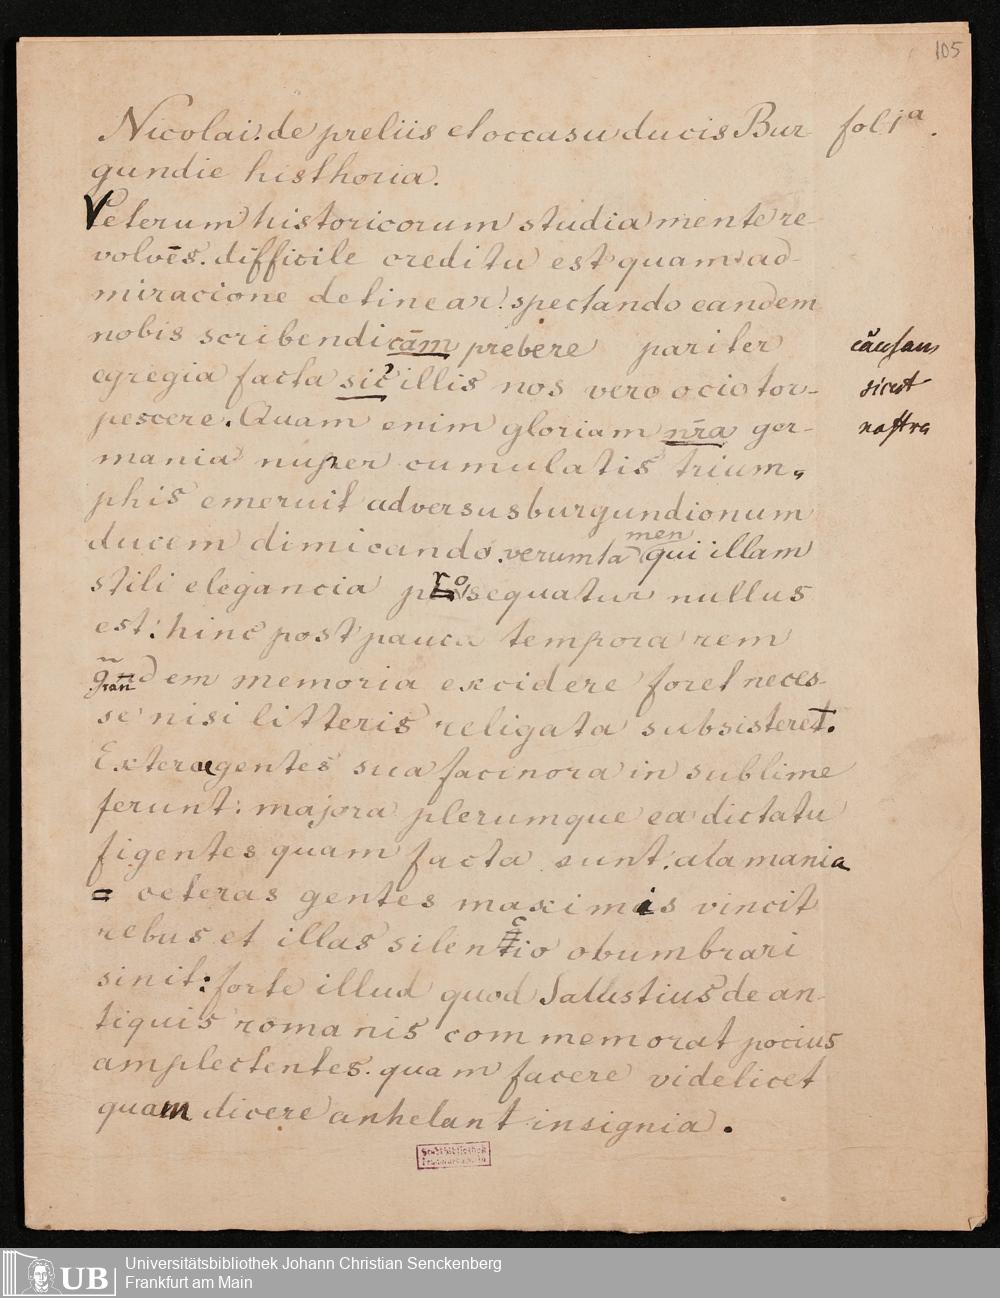 105
Nicolai. de preliis et occasu ducis Bur- fol 1a.
gundie histhoria.
Veterum historicorum studia mente re
volvēs. difficile creditu est quam ad-
miracione detinear! spectando eandem
nobis scribendi cām prebere pariter căusam
egregia facta sic̉ illis nos vero ocio tor- sicut
pescere. Quam enim gloriam nr̄a ger- nostra
mania nuper cumulatis trium-
phis emeruit adversus burgundionum
ducem dimicando. verumtamen qui illam
stili elegancia prosequatur nullus
est: hinc post pauca tempora rem
grandem memoria excidere foret neces-
se nisi litteris religata subsisteret.
Exterae gentes sua facinora in sublime
ferunt: majora plerumque ea dictatu
figentes quam facta sunt: alamania
= ceteras gentes maximis vincit
rebus et illas silencio obumbrari
sinit: forte illud quod Sallustius de an-
tiquis romanis commemorat pocius
amplectentes. quam facere videlicet
quam dicere anhelant insignia.
Stadtbibliothek
Frankfurt a. M.
UB Universitätsbibliothek Johann Christian Senckenberg
Frankfurt am Main